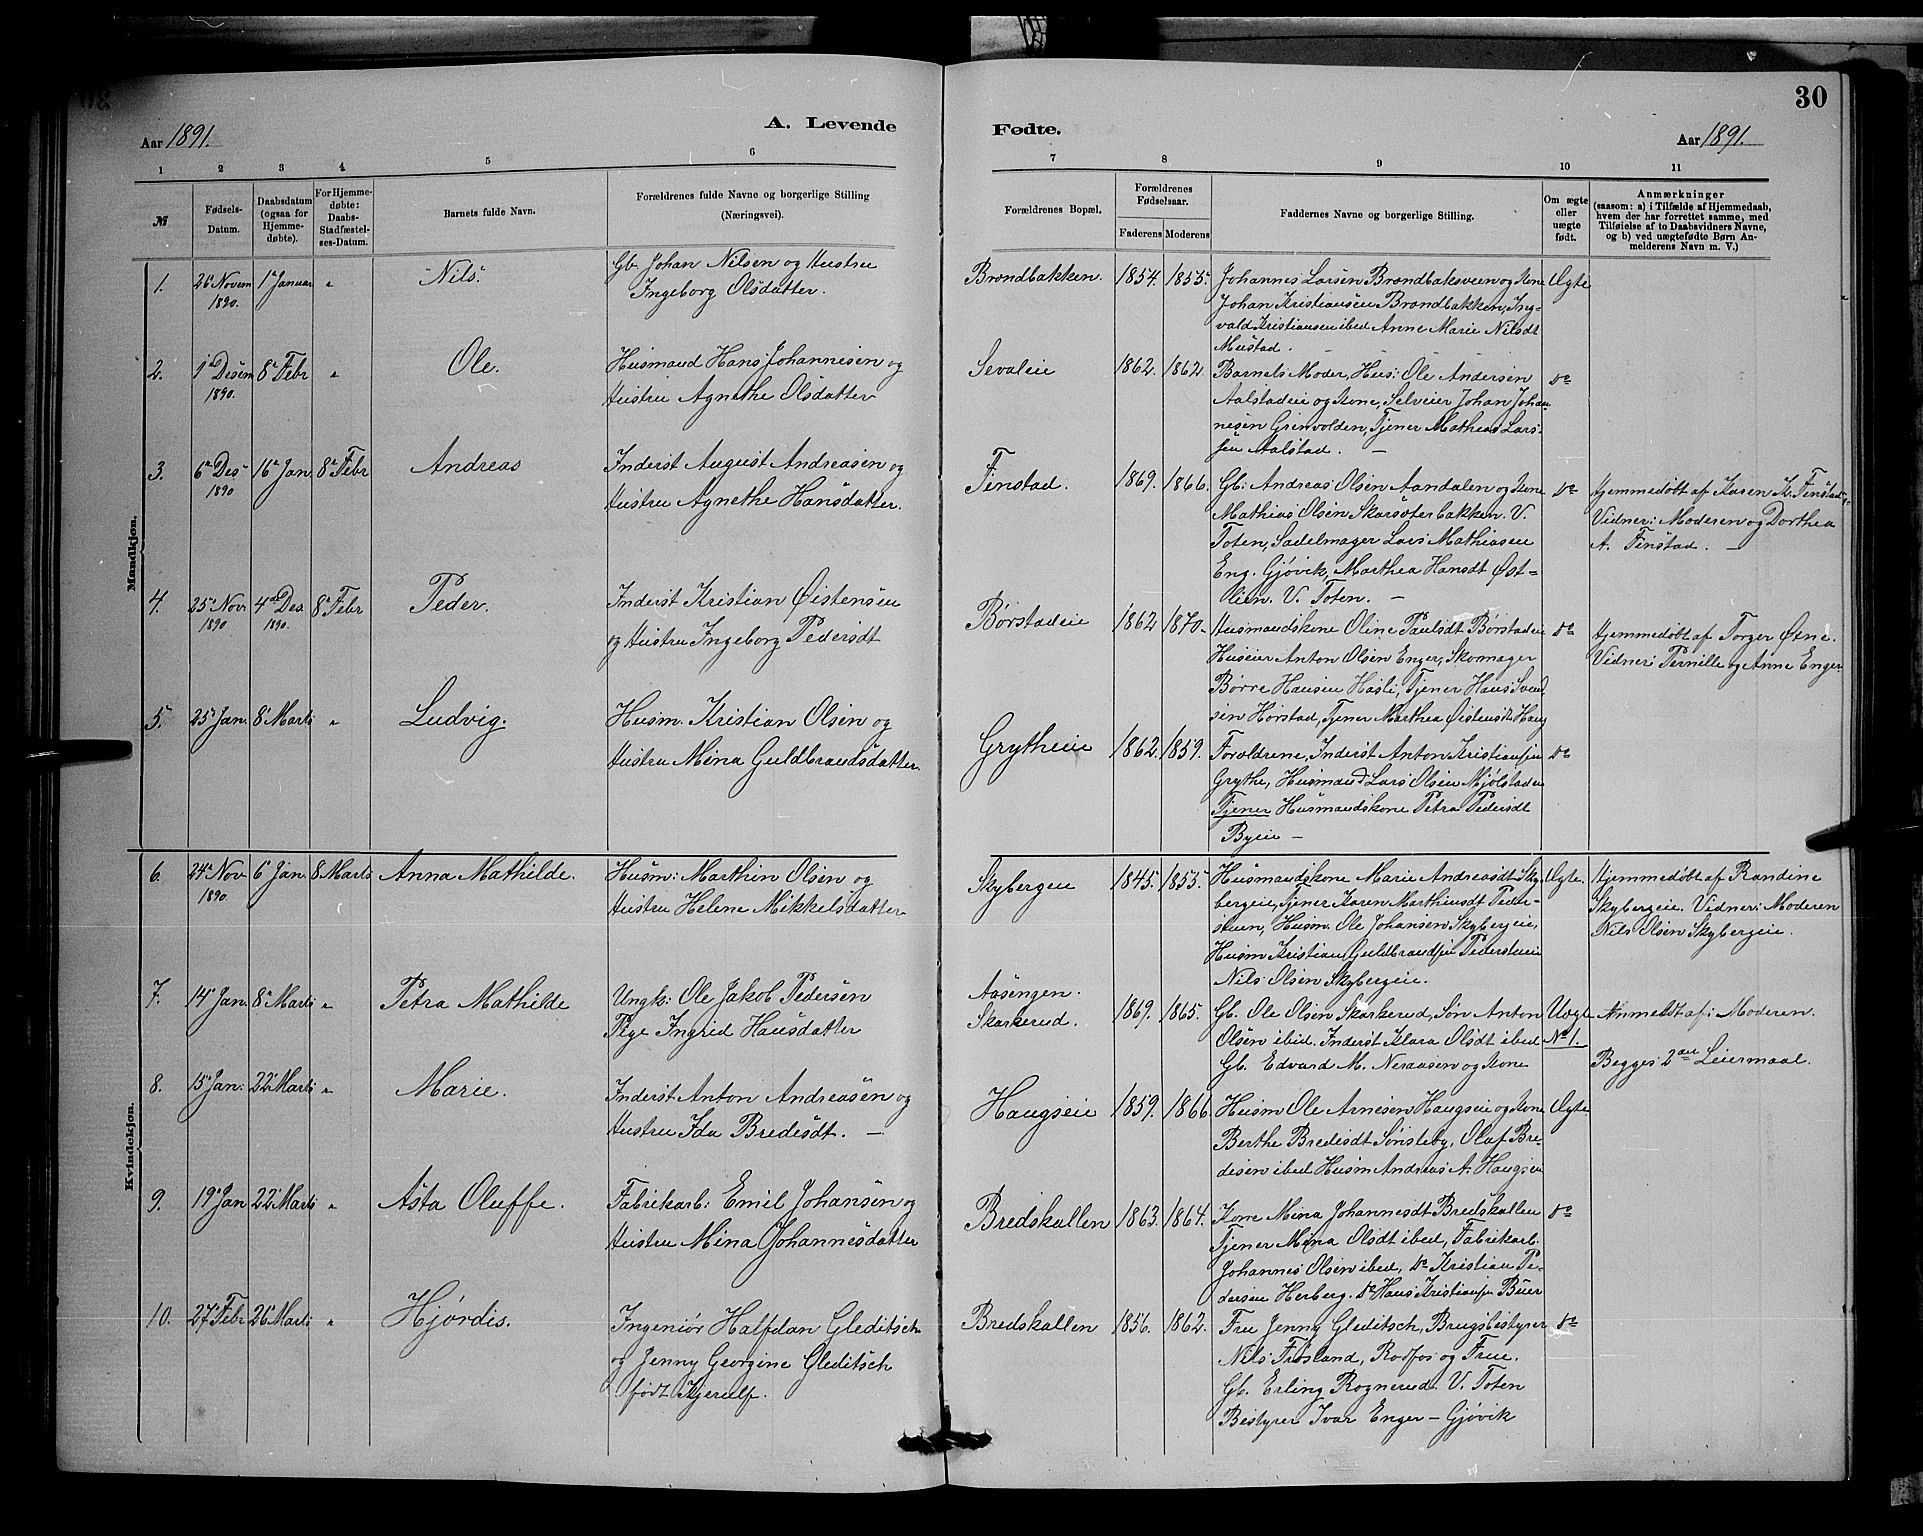 30
Aar 1891.
A. Levende
Fødte.
Aar 1891.
1 2 3 4 5 6
7 8 9 10 11
№
Fødsels-
Datum.
Daabsdatum
(ogsaa for
Hjemme-
døbte).
For Hjemme-
døbte:
Daabs-
Stadfæstel-
ses-Datum.
Barnets fulde Navn.
Forældrenes fulde Navne og borgerlige Stilling
(Næringsvei).
Forældrenes Bopæl.
Forældrenes
Fødselsaar.
Faderens Moderens
Faddernes Navne og borgerlige Stilling.
Om ægte
eller
uægte
født.
Anmærkninger
(saasom: a) i Tilfælde af Hjemmedaab,
hvem der har forrettet samme, med
Tilføielse af to Daabsvidners Navne,
og b) ved uægtefødte Børn An-
melderens Navn m. V.)
Mandkjøn.
1. 26 Novem 1 Januar " Nils. Gb. Johan Nilsen og Hustru
1890. Ingeborg Olsdatter.
Brøndbakken. 1854. 1855. Johannes Larsen Brøndbaksveen og Kone Ægte
Johan Kristiansen Brøndbakken, Ing-
vald Kristiansen ibed Anne Marie Nilsdt
Mustad.
2. 1 Desem 8 Febr " Ole. Husmand Hans Johannesen og
1890. Hustru Agnethe Olsdatter
Sevaleie 1862. 1862 Barnets Moder, Hus: Ole Andersen do
Aalstadeie og Kone, Selveier Johan Johan-
nesen Grinvolden, Tjener Mathea Lars-
sen Aalstad. —
3. 6 Des 16 Jan 8 Febr Andreas Inderst August Andreasen og
1890 Hustru Agnethe Hansdatter.
Finstad. 1869. 1866. Gb: Andreas Olsen Aandalen og Kone do Hjemmedøbt af Karen K. Finstad.
Mathias Olsen Skarsæterbakken. V. Vidner: Moderen og Dorthea
Toten, Sadelmager Lars Mathiasen A. Finstad. —
Eng. Gjøvik, Marthea Hansdt Øst-
lien. V. Toten. —
4. 25 Nov 4 Des 8 Febr Peder. Inderst Kristian Øistensen
1890 1890. og Hustru Ingeborg Pedersdt
Børstadeie 1862 1870. Husmandskone Oline Paulsdt Børstadeie do Hjemmedøbt af Torger Øsne.
Huseier Anton Olsen Enger, Skomager Vidner: Pernille og Anne Enger
Børre Hansen Hasli, Tjener Hans Svend
sen Hørstad, Tjener Marthea Øistensdt Haug
5. 25 Jan. 8 Marts " Ludvig. Husm. Kristian Olsen og
Hustru Mina Guldbrandsdatter.
Grytheie 1862. 1859. Forældrene, Inderst Anton Kristiansen do
Grythe, Husmand Lars Olsen Mjølstadeie
Tjener Husmandskone Petra Pedersdt
Byeie —
Kvindekjøn.
6. 24 Nov 6 Jan. 8 Marts Anna Mathilde. Husm: Marthin Olsen og
1890. Hustru Helene Mikkelsdatter
Skybergeie 1845. 1855. Husmandskone Marie Andreasdt Sky- Ægte. Hjemmedøbt af Randine
bergeie, Tjener Karen Marthinsdt Peder- Skybergeie. Vidner: Moderen
steien, Husm. Ole Johansen Skybergeie, Nils Olsen Skybergeie.
Husm Kristian Guldbrandsen Pedersteeie
Nils Olsen Skybergeie.
7. 14 Jan. 8 Marts " Petra Mathilde Ungk: Ole Jakob Pedersen
Pige Ingrid Hansdatter
Aasengen.
Skarkerud. 1869. 1865. Gb. Ole Olsen Skarkerud, Søn Anton Uægte Anmeldt af: Moderen.
Olsen ibid. Inderst Klara Olsdt ibed No 1.
Gb. Edvard M. Neraasen og Kone Begges 2det Leiermaal.
8. 15 Jan: 22 Marts " Marie. Inderst Anton Andreasen og
Hustru Ida Bredesdt. —
Haugseie 1859. 1866 Husm Ole Arnesen Haugseie og Kone Ægte
Berthe Bredesdt Sønsteby, Olaf Bre-
desen ibed Husm Andreas A. Haugseie
9. 19 Jan 22 Marts " Asta Oluffe. Fabrikarb: Emil Johansen og
Hustru Mina Johannesdatter
Bredskallen 1863. 1864. Kone Mina Johannesdt Bredskallen do
Tjener Mina Olsdt ibed, Fabrikarb.
Johannes Olsen ibed, do Kristian Pe-
dersen Herberg. do Hans Kristiansen Buer
10. 27 Febr 26 Marts " Hjørdis. Ingeniør Halfdan Gleditsch
og Jenny Georgine Gleditsch
født Kjerulf.
Bredskallen 1856. 1862. Fru Jenny Gleditsch, Brugsbestyrer do
Nils Frøsland, Rodfos og Frue.
Gb. Erling Rognerud. V. Toten
Bestyrer Ivar Enger — Gjøvik